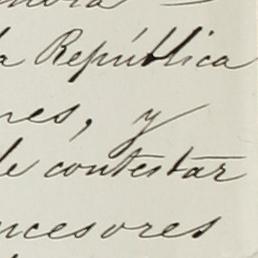 a República
res, y
de contestar
ncesores